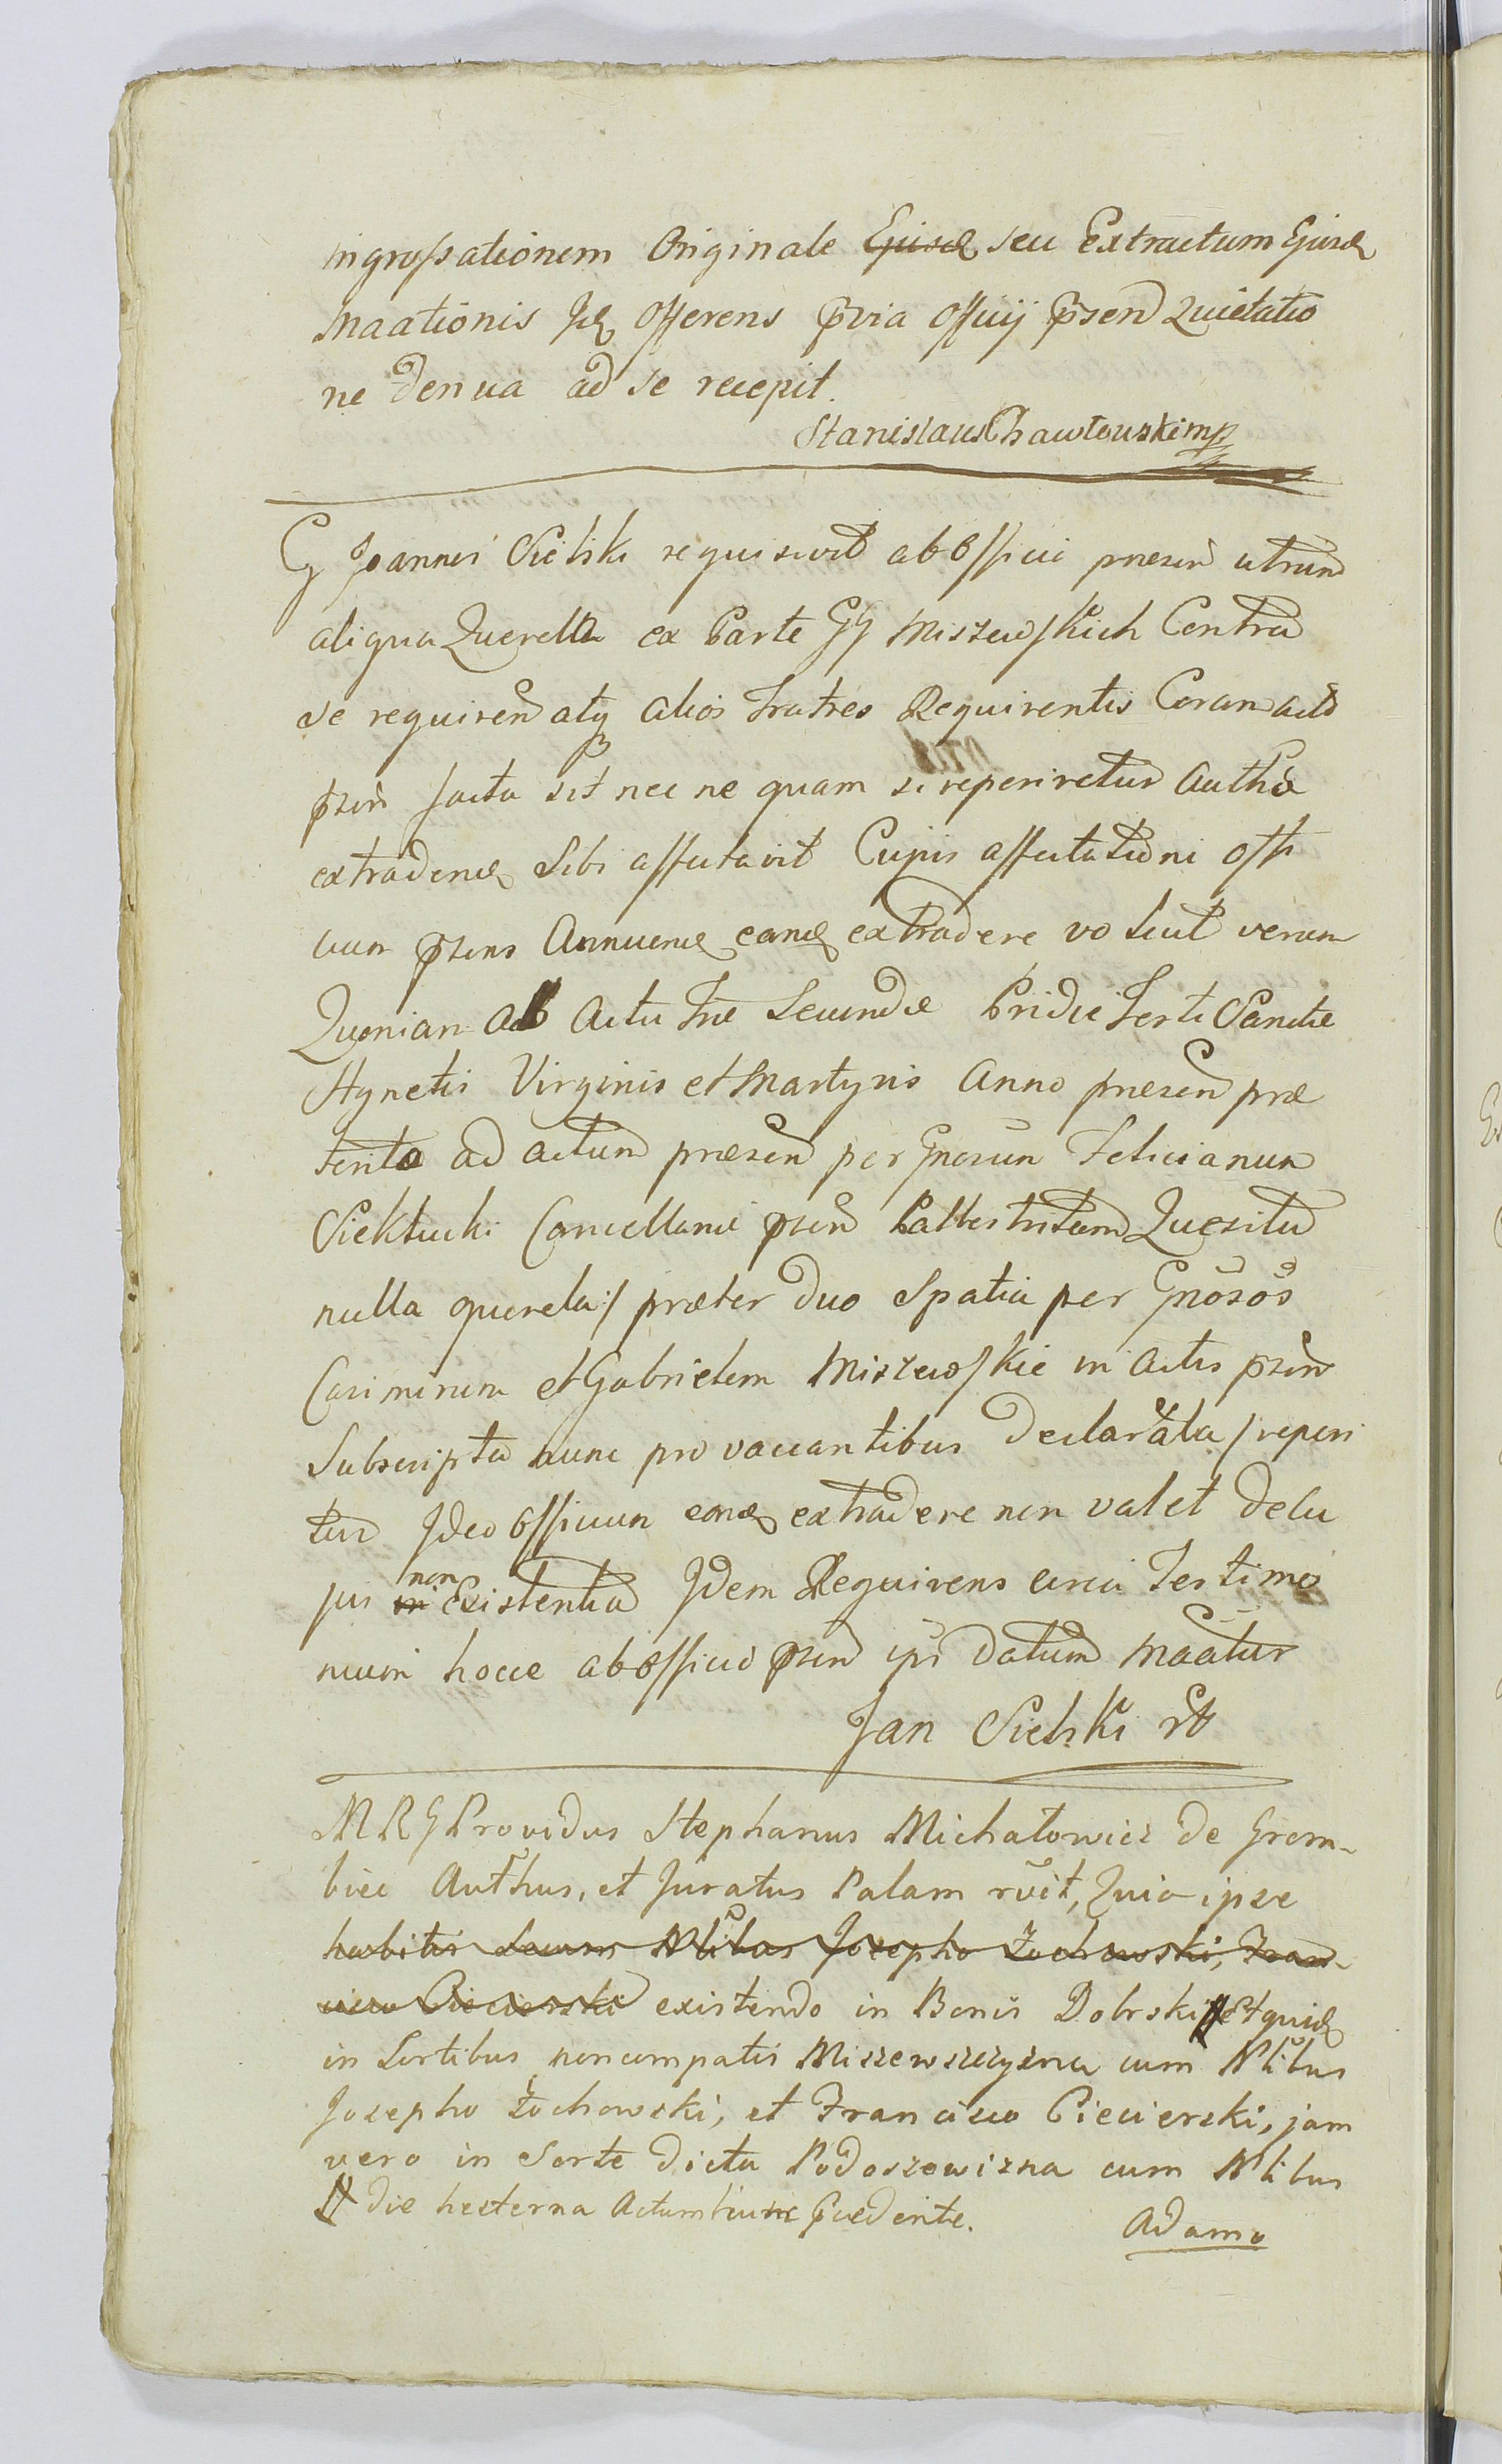 ingrossationem Originale Ejusd seu Extractum Ejusd
Maationis Id Offerens p̄via Officij p̄sen Quietatio
ne denua ad se recepit.
Stanislaus Chawłowski mp
G Joannes Sielski requisivit ab Officio præsen utrum
aliqua Querella ex Parte GG Miszewskich Contra
se requiren atq alios Fratres Requirentis Coram actis
p̄sen facta sit nec ne quam si reperiretur Authen
extradend sibi affectavit Cujus affectationi Offi
cium p̄sens Annuend eand extradere voluit verum
Quoniam ab Actu Friæ Secundæ Pridie Festi Sanctæ
Agnetis Virginis et Martyris Anno præsen præ
terito ad actum præsen per Gnosum Felicianum
Siekłucki Cancellariæ p̄sen Pallestritam Quæsita
nulla querela / præter duo Spatia per Gnosos
Casimirum et Gabrielem Miszewskie in Actis p̄sen
Subscripta nunc pro vacantibus declarata / reperi
tur Ideo Officium eand extradere non valet de cu
jus in non Existentia Idem Requirens circa Testimo
nium hocce ab Officio p̄sen ipsi datum Maatur
Jan Sielski
MRG Providus Stephanus Michałowicz de Grem-
biec Auth̄us, et Juratus Palam rūit, Quia ipse
habitis secum Nlibus Josepho Żochowski, Fran-
cisco Ciecierski existendo in Bonis Dobrski # Et quid
in Sortibus nuncupatis Miszewszczyzna cum Nlibus
Josepho Żochowski, et Francisco Ciecierski, jam
vero in Sorte dicta Podoszewizna cum Nlibus
# die hesterna Actum hunc p̄cedente.
Adamo